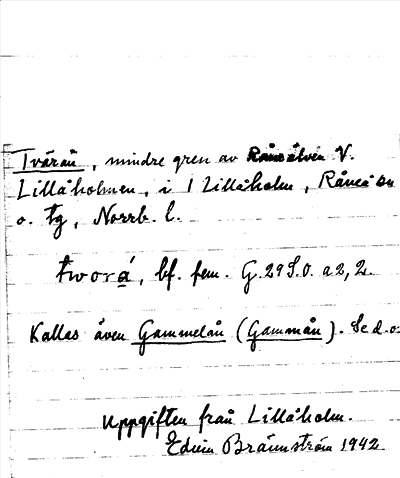 Tvärån, mindre gren av Råneälven V.
Lillåholmen, i 1 Lillåholm, Råneå sn
o. tg, Norrb. l.
tworá, bf. fem. G. 29 S.O. a 2, 2.
Kallas även Gammelån (Gammån). Se d.o.
Uppgiften från Lillåholm.
Edvin Brännström 1942